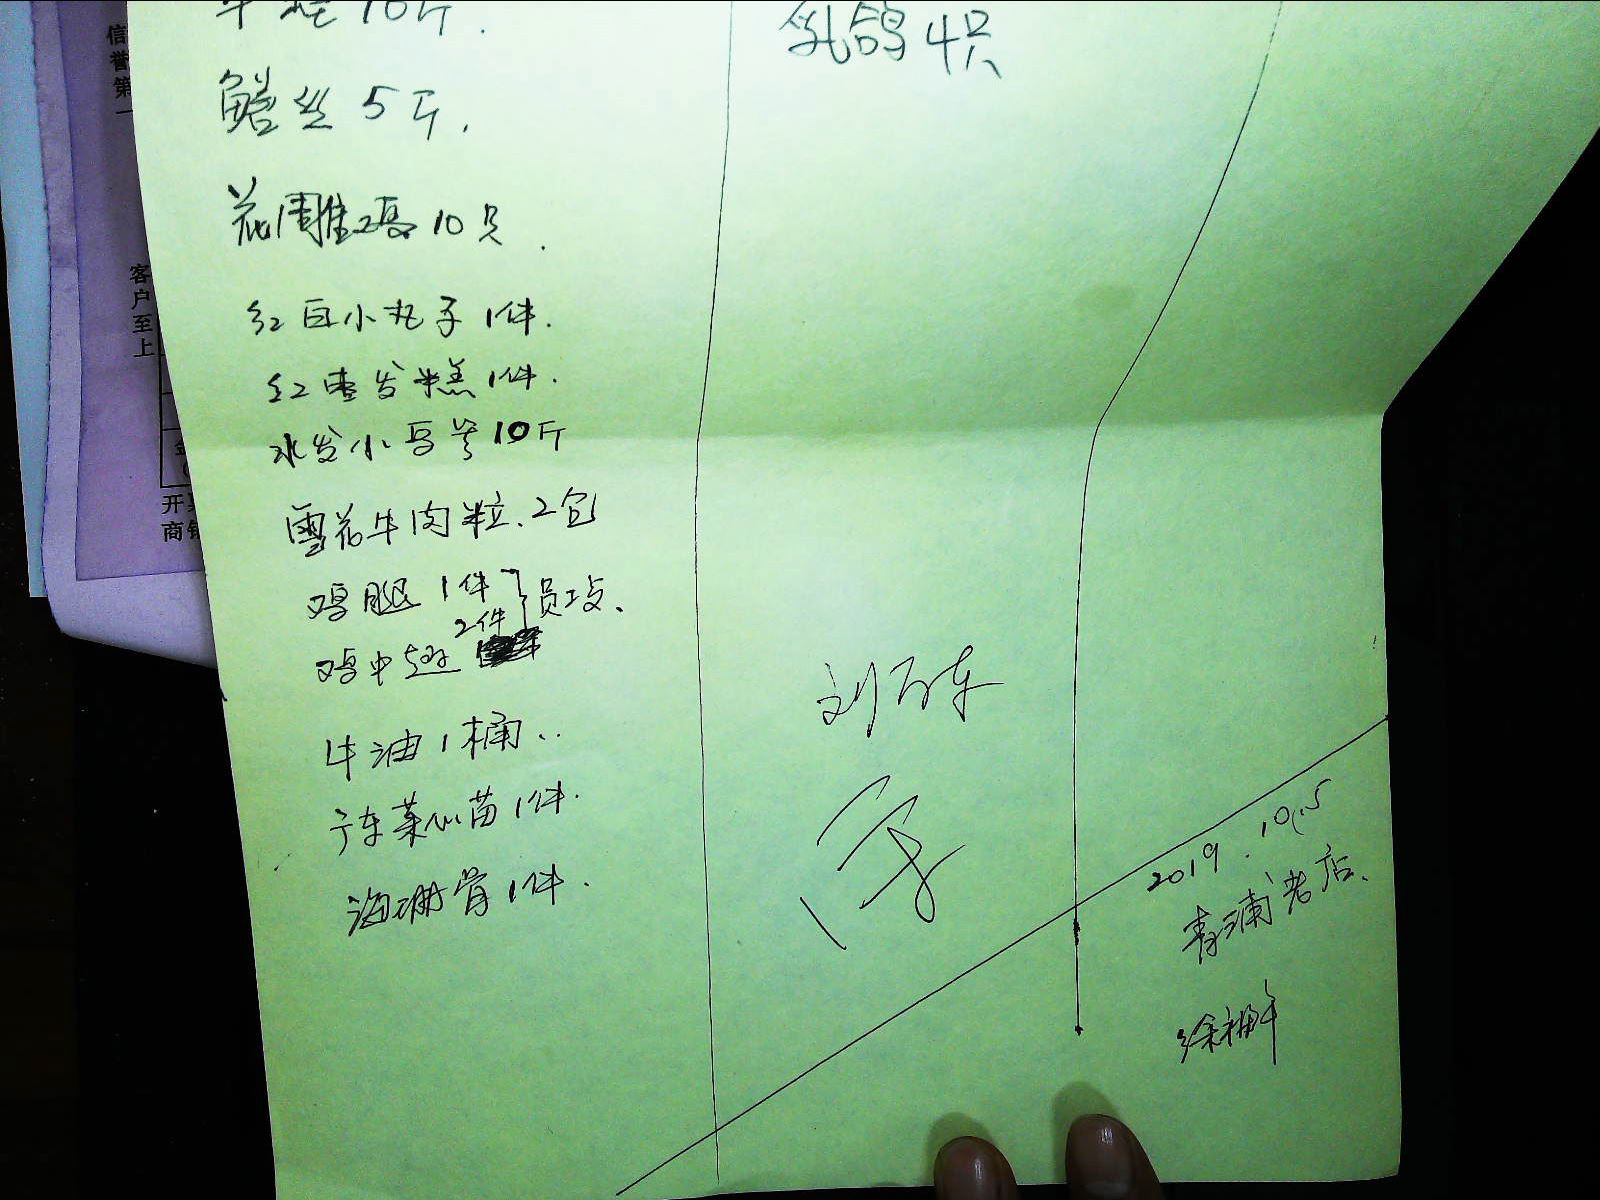 10斤.
鳝丝 5斤.
花雕鸡 10只.
红白小丸子 1件.
红枣发糕 1件.
水发小乌参 10斤
雪花牛肉粒. 2包
鸡腿 1件
员工点、
2件
鸡中翅
牛油 1桶..
广东菜心苗 1件.
海珊骨 1件.
乳鸽 4只
2019.10.5
青浦老店.
信誉第一
客户至上
开
商